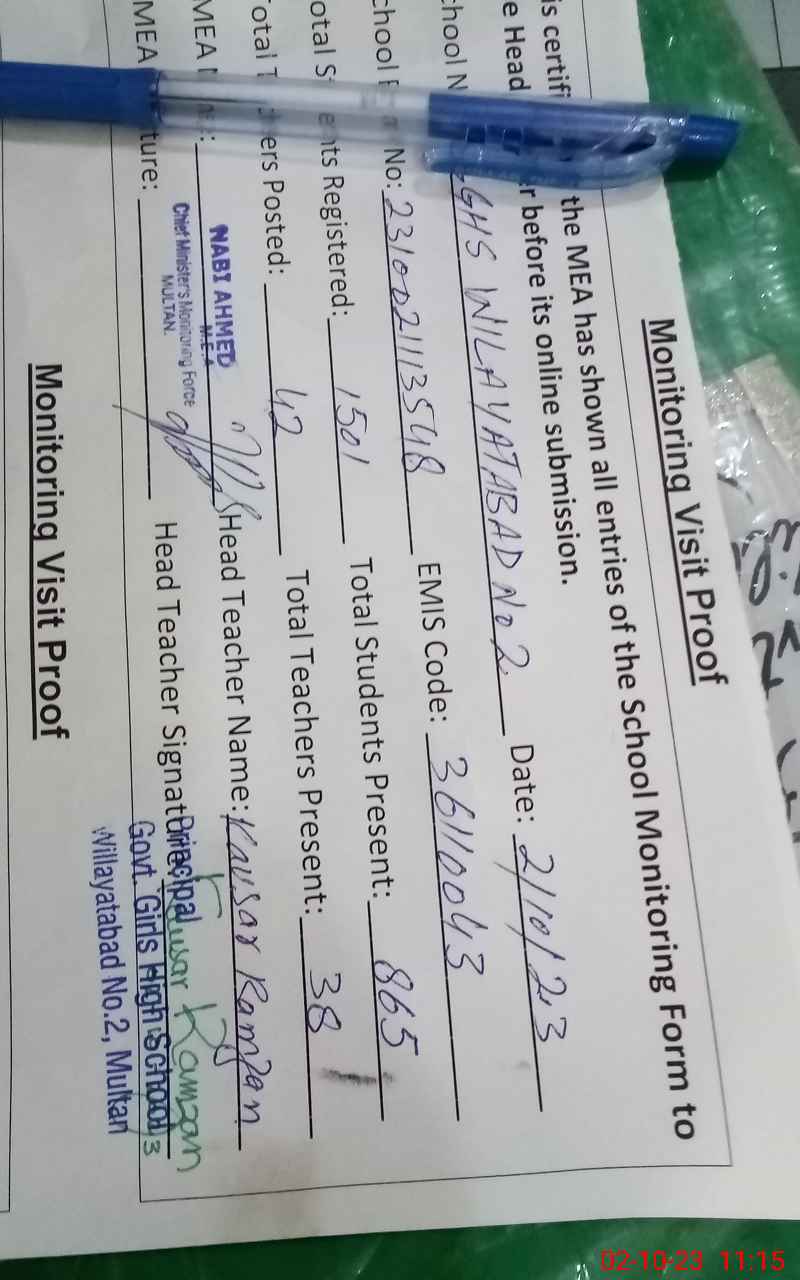 Monitoring Visit Proof
is certifi the MEA has shown all entries of the School Monitoring Form to
e Head r before its online submission.
chool N GHS WILAYATABAD No 2 Date: 2/10/23
chool No: 2310021113548 EMIS Code: 36110043
otal S nts Registered: 1501 Total Students Present: 865
otal T ers Posted: 42 Total Teachers Present: 38
MEA : NABI AHMED Head Teacher Name: Kausar Ramzan
M.E.A
Chief Minister's Monitoring Force
MULTAN.
MEA ture: Head Teacher Signature: Kausar Ramzan
Principal
Govt. Girls High School
Willayatabad No.2, Multan
Monitoring Visit Proof
02-10-23 11:15